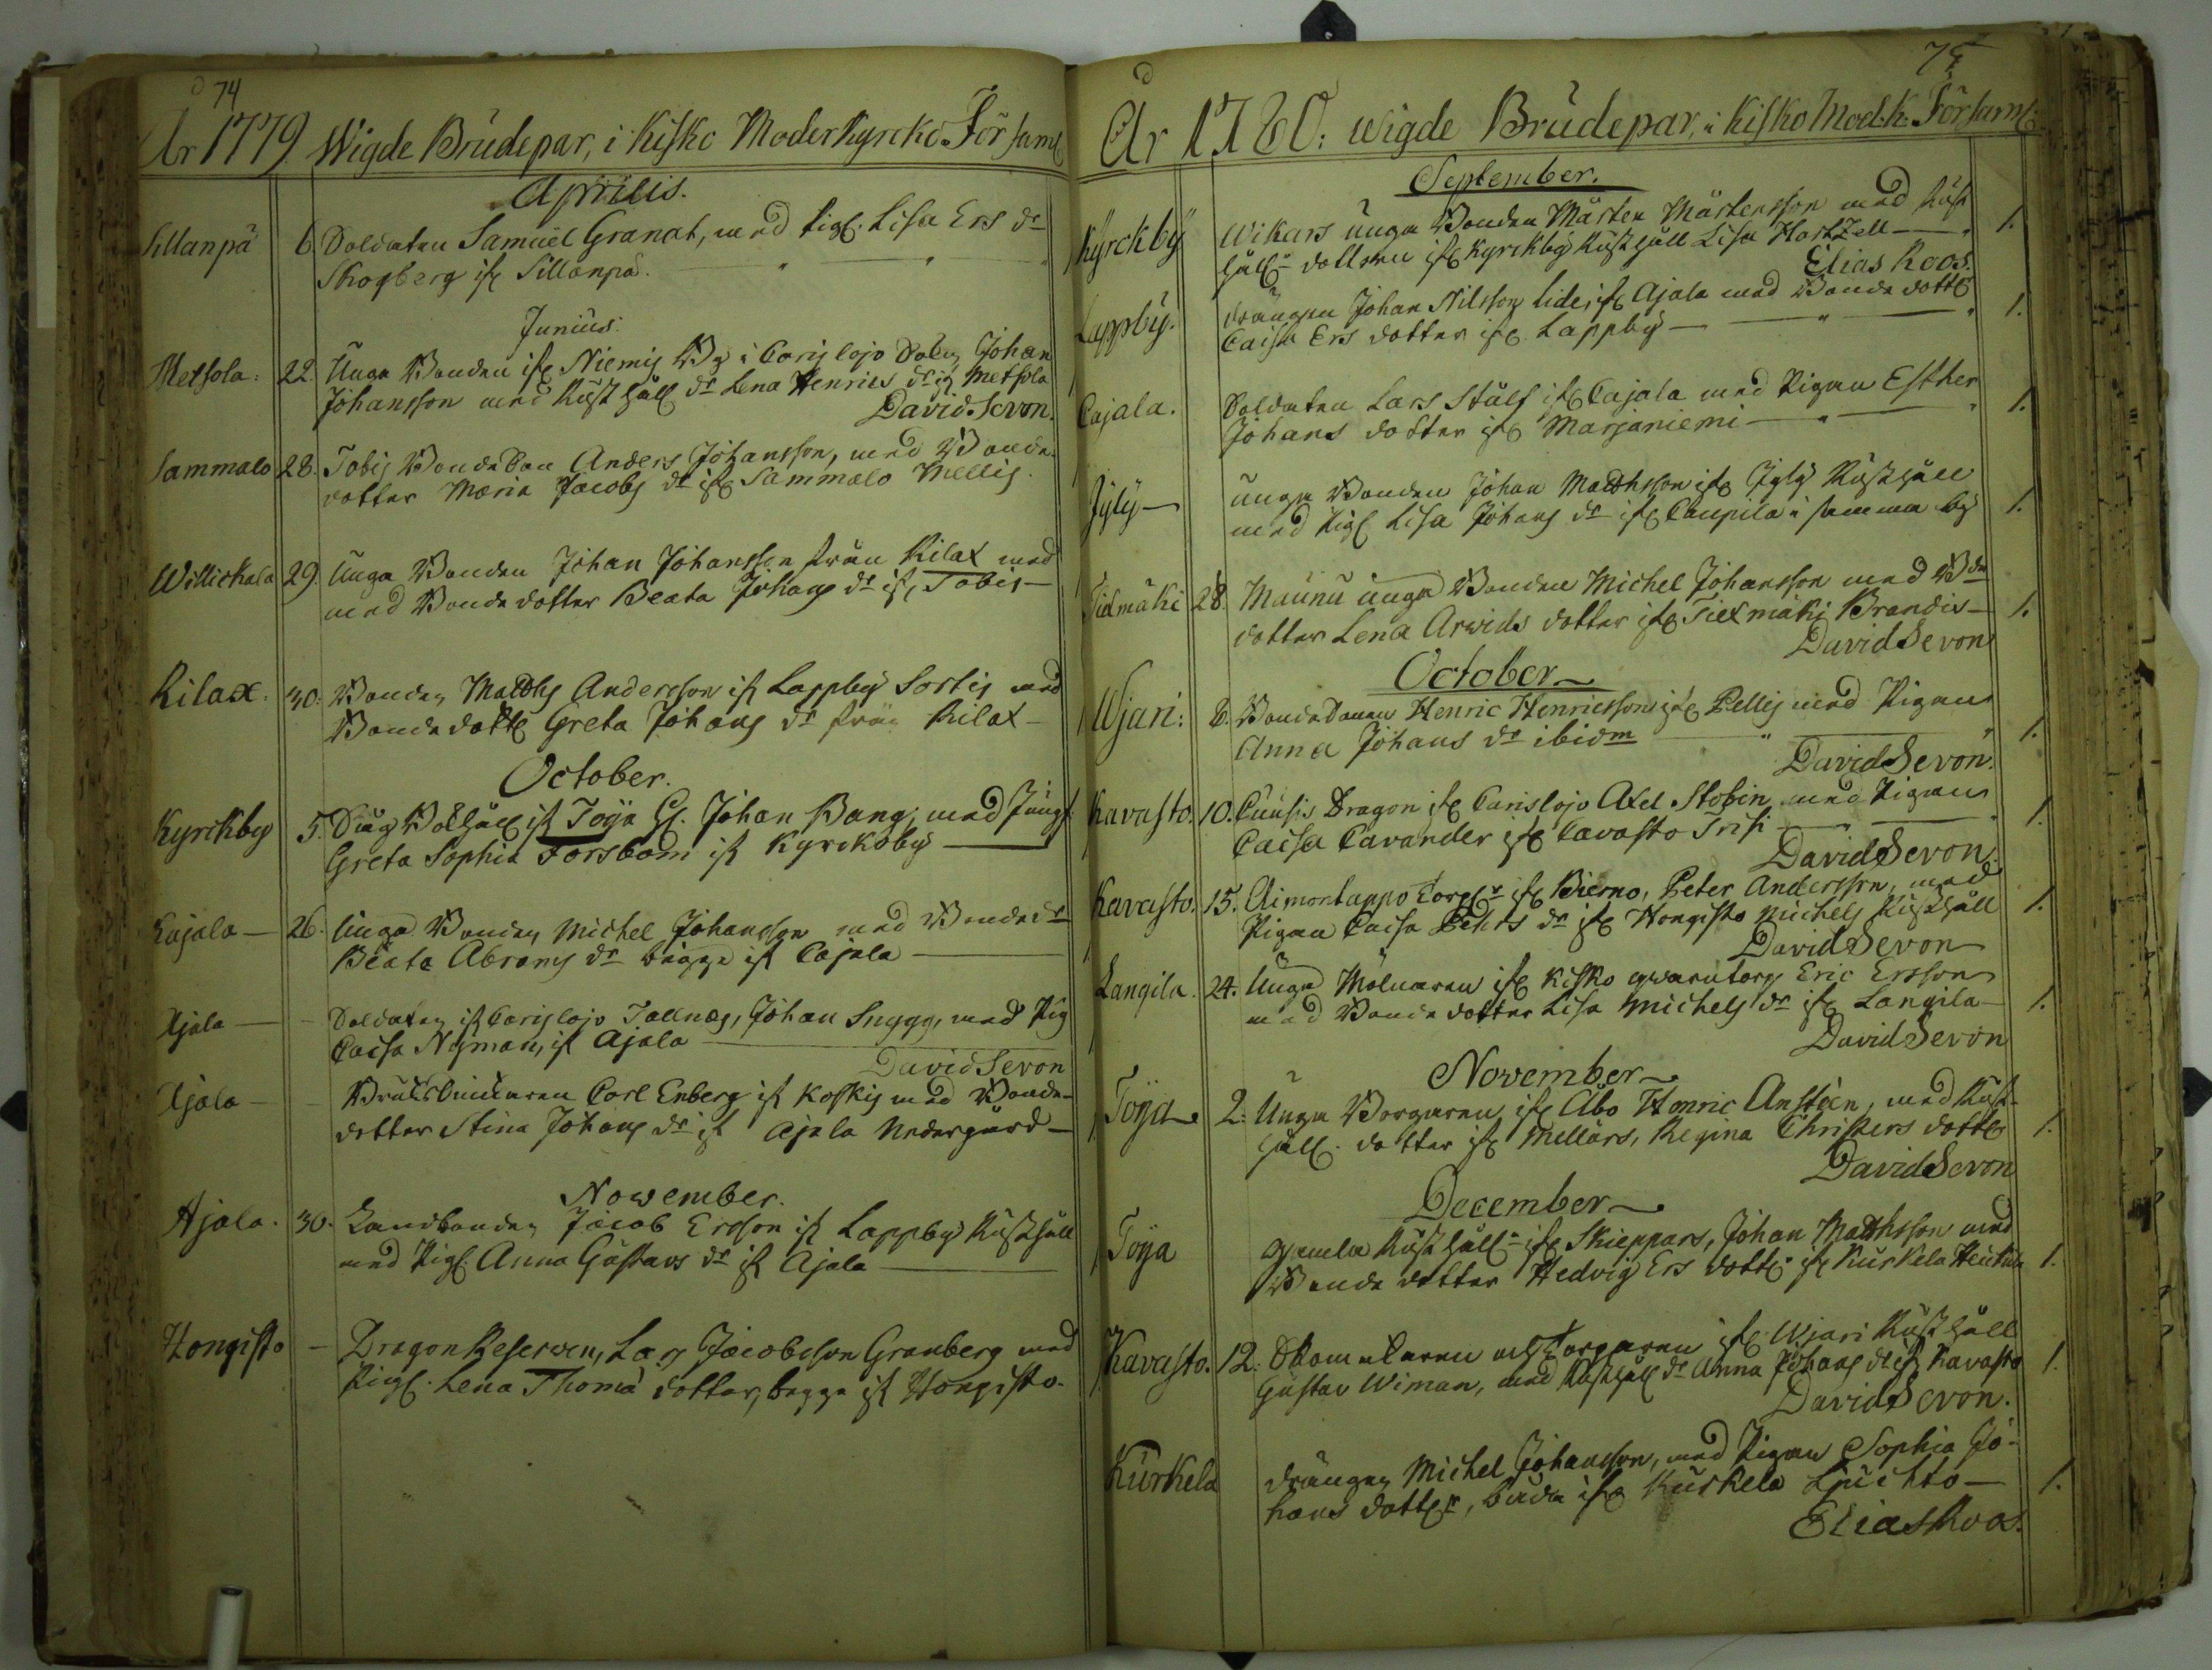 74
År 1779 Wigde Brudepar, i Kisko Moderkyrcko Församl
Aprilis.
Sillanpä 6. Soldaten Samuel Granat, med Pig. Lisa Ers dr
Skogberg ifr Sillanpä.
Junius.
Metsola. 22. Unga Bonden ifr Niemis By i Carislojo Johan
Johansson med Rusthåll dr Lena Henrics dr ifr Metsola
David Sevon.
Sammalo 28. Tobis Bonde Son Anders Johansson, med Bonde
dotter Maria Jacobs dr ifr Sammalo Mellis.
Willickala 29. Unga Bonden Johan Johansson från Kilax med
med Bonde dotter Beata Johans dr ifr Tobis —
Kilax. 30. Bonden Matths Andersson ifr Lappby Sortis med
Bonde dottr Greta Johans dr från Kilax —
October.
Kyrckby 5. ifr Töija Johan Bang, med Jungf.
Greta Sophia Forsbom ifr Kyrckoby —
Kajala — 26. Unga Bonden Michel Johansson med Bonde dr
Beata Abrams dr bägge ifr Cajala —
Ajala — Soldaten ifr Carislojo Tallnäs, Johan Snygg, med Pig
Caisa Nyman, ifr Ajala —
David Sevon
Ajala — Carl Enberg ifr Koskis med Bonde-
dotter Stina Johans dr ifr Ajala Nedergård —
November.
Ajala. 30. Landbonden Jacob Ersson ifr Lappby Rusthåll
med Pig. Anna Gustavs dr ifr Ajala —
Hongisto — Dragon Reserven, Lars Jacobsson Granberg med
Pig. Lena Thomä dotter, bägge ifr Hongisto.
75
År 1780: wigde Brudepar, i Kisko Mod.k. Församl.
September.
Kyrckby Wikars unga Bonden Mårten Mårtensson med Rust
håll dotteren ifr Kyrckby Rusthåll Lisa Hartzell — 1.
Elias Roos.
Lappby. drängen Johan Nilsson Lide, ifr Ajala med Bonde dottr
Caisa Ers dotter ifr Lappby — 1.
Cajala. Soldaten Lars Stålf ifr Cajala med Pigan Esther
Johans dotter ifr Marjaniemi — 1.
Jyly — unga Bonden Johan Matthsson ifr Jyly Rusthåll
med Pig Lisa Johans dr ifr Caupila i samma by 1.
Tielmäki 28. Maunu unga Bonden Michel Johansson med Bde
dotter Lena Arwids dotter ifr Tielmäki Brandis — 1.
David Sevon
October
Wjari: 8. Bonde Sonen Henric Henricsson ifr Pellis med Pigan
Anna Johans dr ibidm 1.
David Sevon.
Kavasto. 10. Cuusis Dragon ifr Carislojo Axel Stobin med Pigan
Caisa Cavander ifr Cavasto Frisi 1.
David Sevon.
Kavasto. 15. Aimontappo Torp ifr Bierno, Peter Andersson, med
Pigan Caisa Peters dr ifr Hongisto Michels Rusthåll 1.
David Sevon
Langila. 24. Unga Mölnaren ifr Kisko qwarntorp Eric Ersson
med Bonde dotter Lisa Michels dr ifr Langila — 1.
David Sevon
November
Töija 2. Unga Borgaren ifr Åbo Henric Anstéen, med Rust-
håll. dotter ifr Mellärs, Regina Christers dottr 1.
David Sevon
December
Töija Gamla Rusthåll ifr Skieppars, Johan Matthsson med
Bonde dotter Hedvig Ers dottr ifr Kurkela 1.
Kavasto. 12. Skomakaren och Torparen ifr Wjari Rusthåll
Gustav Wiman, med Rusthåll dr Anna Johans dr ifr Kavasto 1.
David Sevon.
Kurkela drängen Michel Johansson, med Pigan Sophia Jo-
hans dottr, båda ifr Kurkela — 1.
Elias Roos.